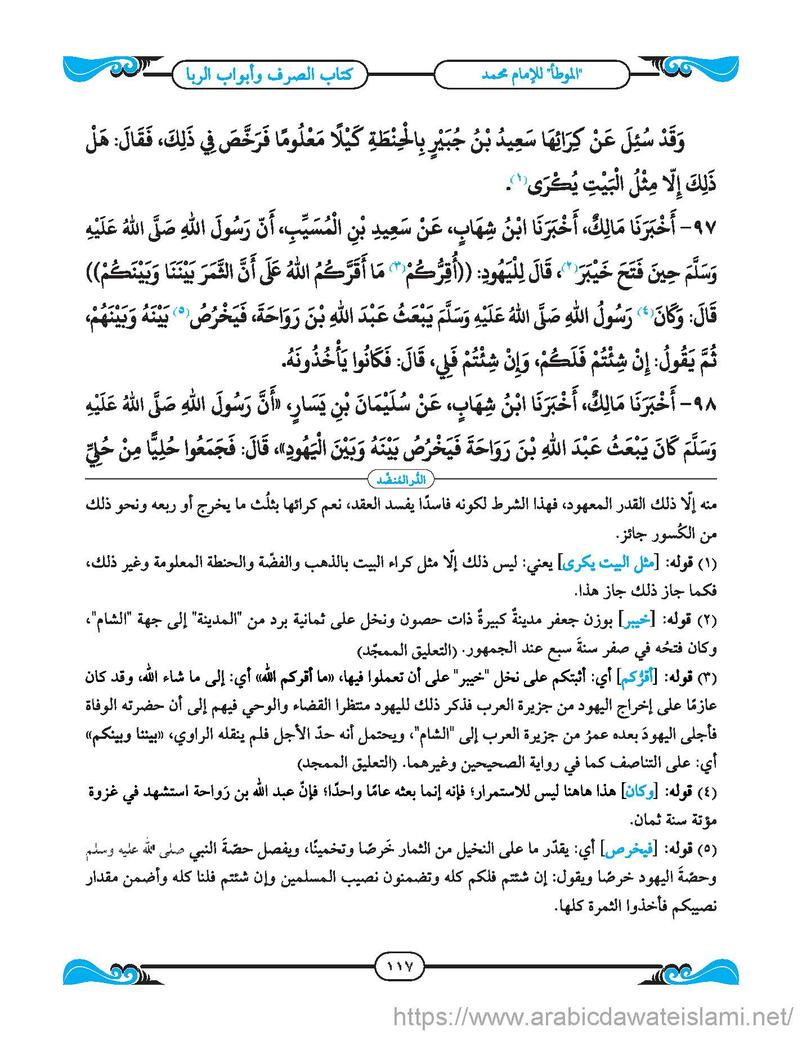 "الموطأ" للإمام محمد
كتاب الصرف وأبواب الربا
وَقَدْ سُئِلَ عَنْ كِرَائِهَا سَعِيدُ بْنُ جُبَيْرٍ بِالْحِنْطَةِ كَيْلًا مَعْلُومًا فَرَخَّصَ فِي ذَلِكَ، فَقَالَ: هَلْ
ذَلِكَ إِلَّا مِثْلُ الْبَيْتِ يُكْرَى(١).
٩٧- أَخْبَرَنَا مَالِكٌ، أَخْبَرَنَا ابْنُ شِهَابٍ، عَنْ سَعِيدِ بْنِ الْمُسَيِّبِ، أَنَّ رَسُولَ اللهِ صَلَّى اللهُ عَلَيْهِ
وَسَلَّمَ حِينَ فَتَحَ خَيْبَرَ(٢)، قَالَ لِلْيَهُودِ: ((أُقِرُّكُمْ(٣) مَا أَقَرَّكُمُ اللهُ عَلَى أَنَّ الثَّمَرَ بَيْنَنَا وَبَيْنَكُمْ))
قَالَ: وَكَانَ(٤) رَسُولُ اللهِ صَلَّى اللهُ عَلَيْهِ وَسَلَّمَ يَبْعَثُ عَبْدَ اللهِ بْنَ رَوَاحَةَ، فَيَخْرُصُ(٥) بَيْنَهُ وَبَيْنَهُمْ،
ثُمَّ يَقُولُ: إِنْ شِئْتُمْ فَلَكُمْ، وَإِنْ شِئْتُمْ فَلِي، قَالَ: فَكَانُوا يَأْخُذُونَهُ.
٩٨- أَخْبَرَنَا مَالِكٌ، أَخْبَرَنَا ابْنُ شِهَابٍ، عَنْ سُلَيْمَانَ بْنِ يَسَارٍ، «أَنَّ رَسُولَ اللهِ صَلَّى اللهُ عَلَيْهِ
وَسَلَّمَ كَانَ يَبْعَثُ عَبْدَ اللهِ بْنَ رَوَاحَةَ فَيَخْرُصُ بَيْنَهُ وَبَيْنَ الْيَهُودِ»، قَالَ: فَجَمَعُوا حُلِيًّا مِنْ حُلِيِّ
الدُّر المُنضَّد
منه إلّا ذلك القدر المعهود، فهذا الشرط لكونه فاسدًا يفسد العقد، نعم كرائها بثلُث ما يخرج أو ربعه ونحو ذلك
من الكُسور جائز.
(١) قوله: [مثل البيت يكرى] يعني: ليس ذلك إلّا مثل كراء البيت بالذهب والفضّة والحنطة المعلومة وغير ذلك،
فكما جاز ذلك جاز هذا.
(٢) قوله: [خيبر] بوزن جعفر مدينةٌ كبيرةٌ ذات حصون ونخل على ثمانية برد من "المدينة" إلى جهة "الشام"،
وكان فتحُه في صفر سنةَ سبع عند الجمهور. (التعليق الممجّد)
(٣) قوله: [أقرُّكم] أي: أثبتكم على نخل "خيبر" على أن تعملوا فيها، «ما أقركم الله» أي: إلى ما شاء الله، وقد كان
عازمًا على إخراج اليهود من جزيرة العرب فذكر ذلك لليهود منتظرا القضاء والوحي فيهم إلى أن حضرته الوفاة
فأجلى اليهودَ بعده عمرُ من جزيرة العرب إلى "الشام"، ويحتمل أنه حدّ الأجل فلم ينقله الراوي، «بيننا وبينكم»
أي: على التناصف كما في رواية الصحيحين وغيرهما. (التعليق الممجد)
(٤) قوله: [وكان] هذا هاهنا ليس للاستمرار؛ فإنه إنما بعثه عامًا واحدًا؛ فإنّ عبد الله بن رَواحة استشهد في غزوة
مؤتة سنة ثمان.
(٥) قوله: [فيخرص] أي: يقدّر ما على النخيل من الثمار خَرصًا وتخمينًا، ويفصل حصّةَ النبي صلى الله عليه وسلم
وحصّةَ اليهود خرصًا ويقول: إن شئتم فلكم كله وتضمنون نصيب المسلمين وإن شئتم فلنا كله وأضمن مقدار
نصيبكم فأخذوا الثمرة كلها.
١١٧
https://www.arabicdawateislami.net/